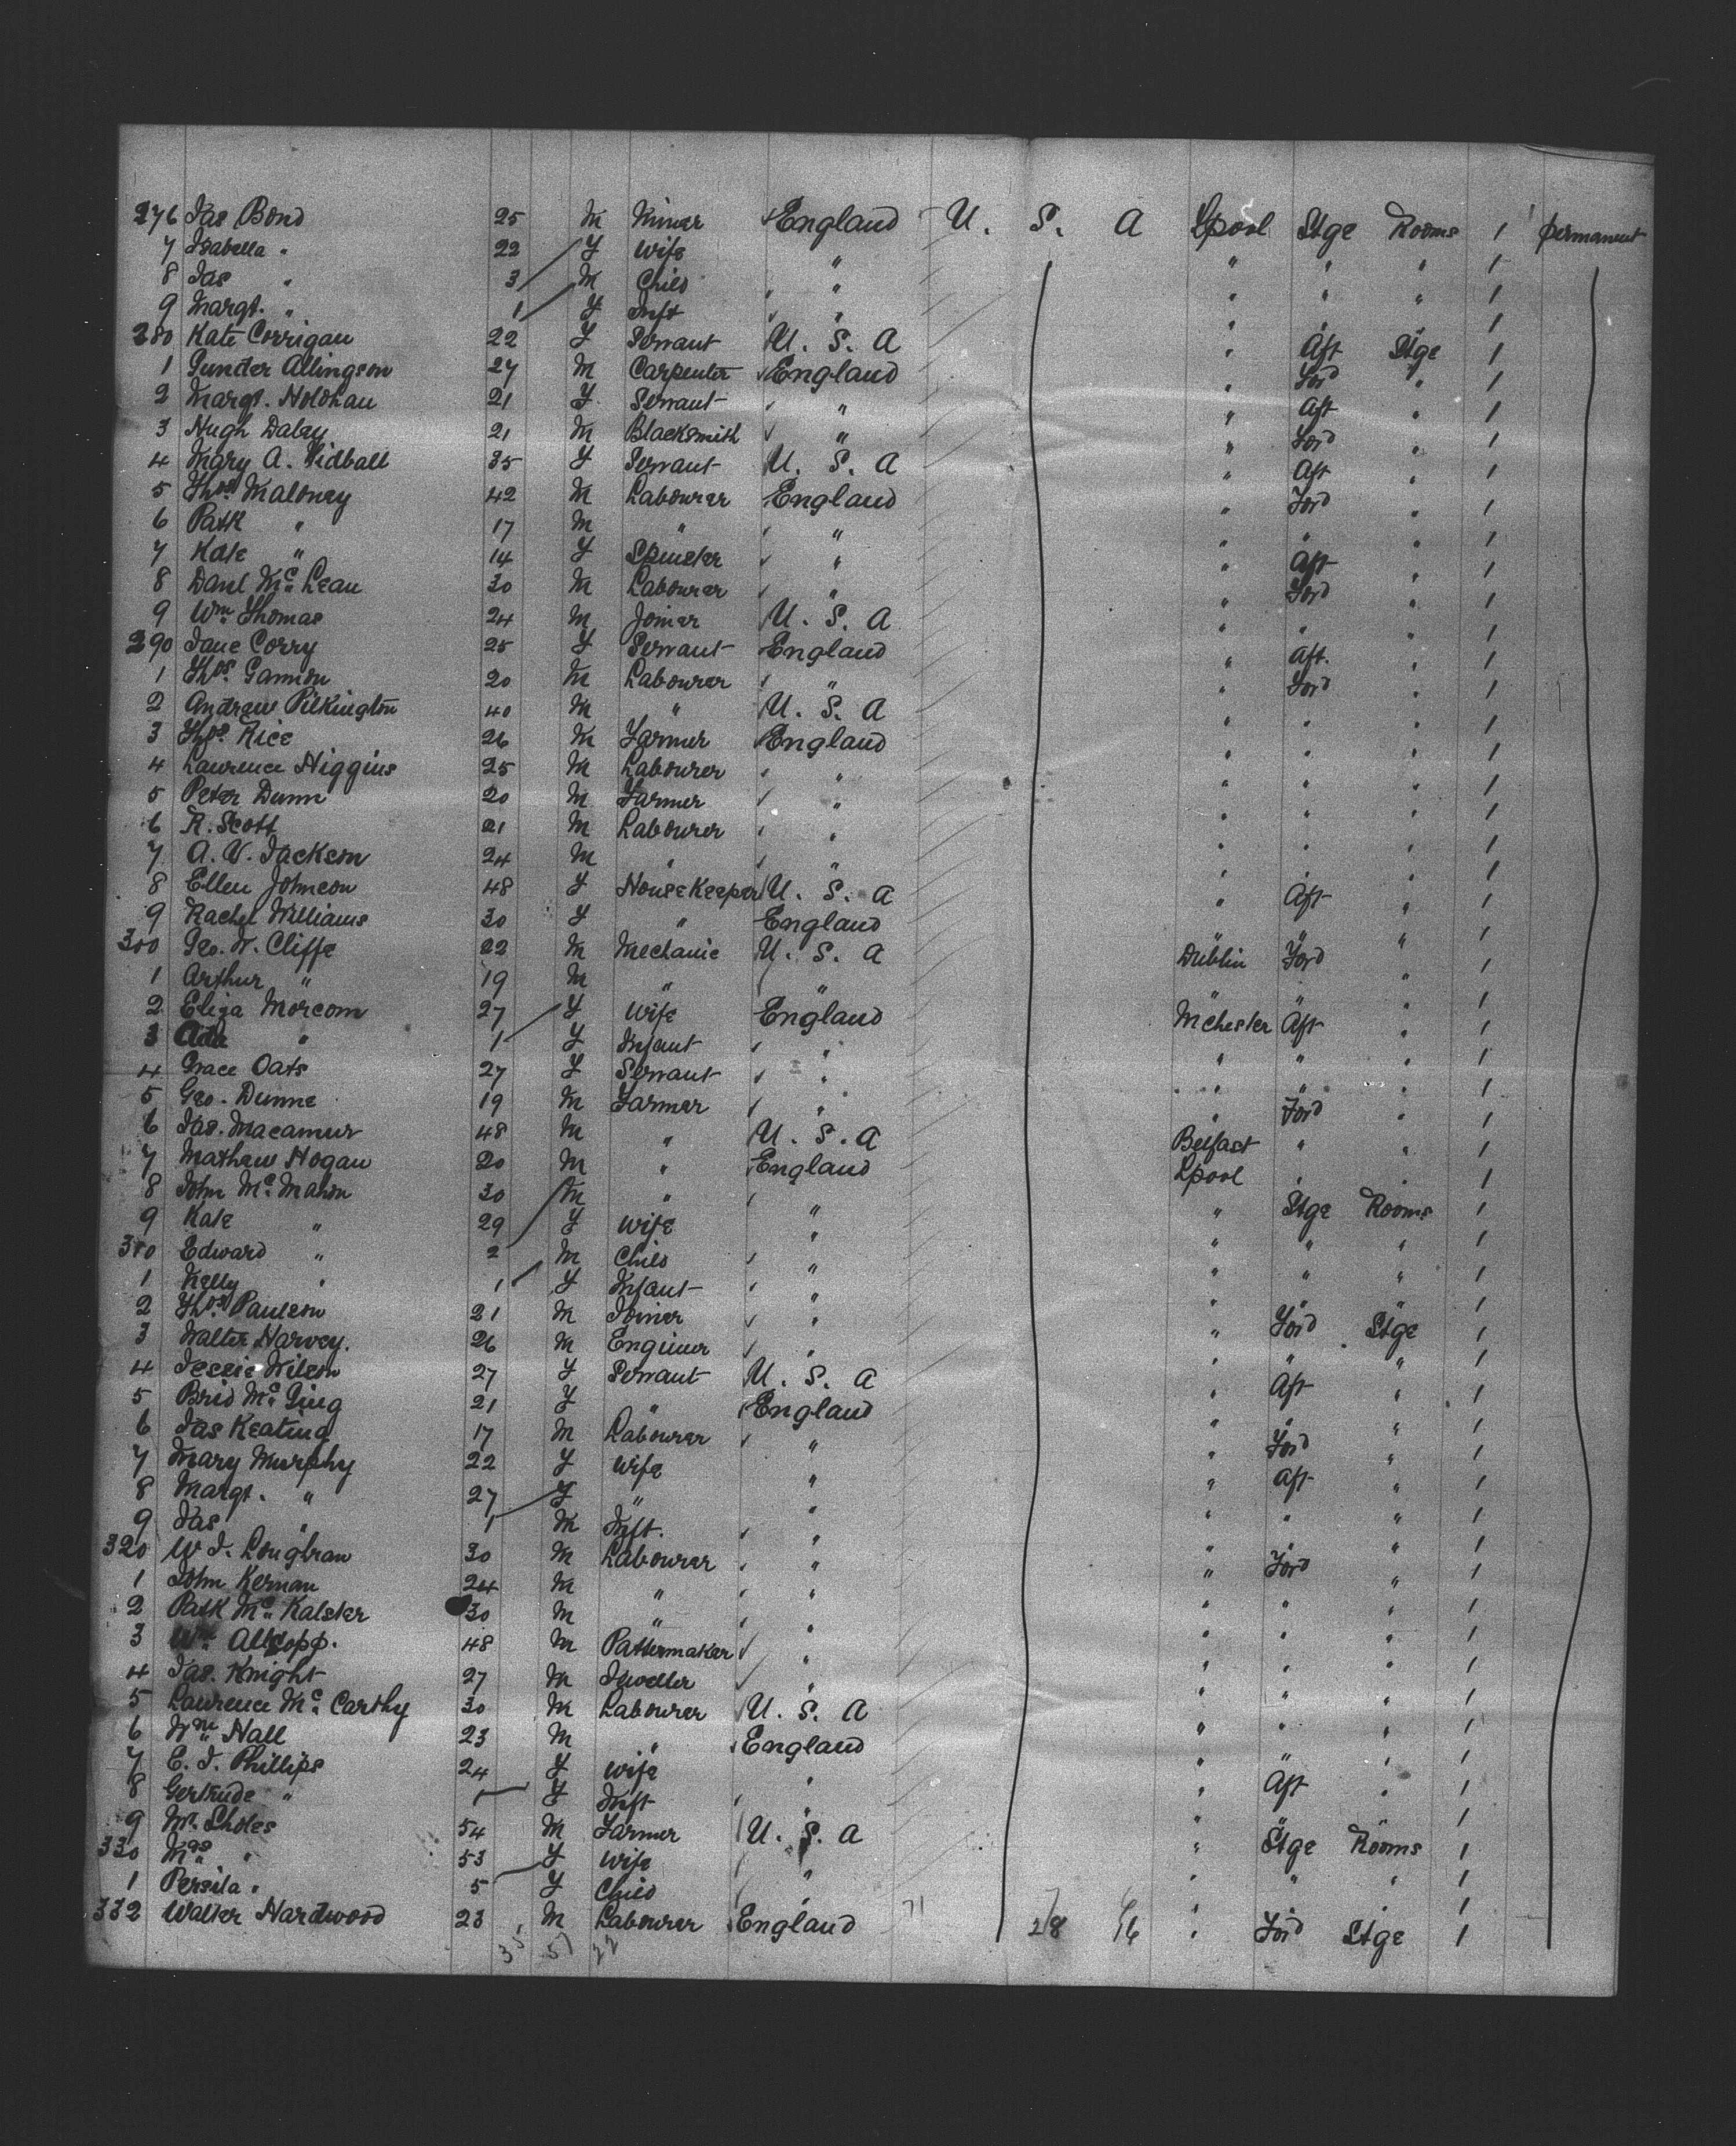 276 Jas Bond 25 M Miner England U. S. A Lpool Stge Rooms 1 permanent
7 Isabella " 22 F Wife " " " " 1
8 Jas " 3 M Child " " " " 1
9 Margt. " 1 F Inft " " " " 1
280 Kate Corrigan 22 F Servant U. S. A " Aft Stge 1
1 Gunder Allingson 27 M Carpenter England " Ford " 1
2 Margt. Holohau 21 F Servant " " Aft " 1
3 Hugh Daley 21 M Blacksmith " " Ford " 1
4 Mary A. Vidball 35 F Servant U. S. A " Aft " 1
5 Thos Maloney 42 M Labourer England " Ford " 1
6 Patk " 17 M " " " " " 1
7 Kate " 14 F Spinster " " Aft " 1
8 Danl McLean 30 M Labourer " " Ford " 1
9 Wm Thomas 24 M Joiner U. S. A " " " 1
290 Jane Corry 25 F Servant England " Aft. " 1
1 Thos. Gannon 20 M Labourer " " Ford " 1
2 Andrew Pilkington 40 M " U. S. A " " " 1
3 Thos. Rice 26 M Farmer England " " " 1
4 Laurence Higgins 25 M Labourer " " " " 1
5 Peter Dunn 20 M Farmer " " " " 1
6 R. Scott 21 M Labourer " " " " 1
7 A. V. Jackson 24 M " " " " " 1
8 Ellen Johnson 48 F Housekeeper U. S. A " Aft " 1
9 Rachel Williams 30 F " England " " " 1
300 Geo. W. Cliffe 22 M Mechanic U. S. A Dublin Ford " 1
1 Arthur " 19 M " " " " " 1
2 Eliza Morcom 27 F Wife England Mchester Aft " 1
3 Ada " 1 F Infant " " " " 1
4 Grace Oats 27 F Servant " " " " 1
5 Geo. Dunne 19 M Farmer " " Ford " 1
6 Jas. Macamur 48 M " U. S. A Belfast " " 1
7 Mathew Hogan 20 M " England Lpool " " 1
8 John McMahon 30 M " " " Stge Rooms 1
9 Kate " 29 F Wife " " " " 1
310 Edward " 2 M Child " " " " 1
1 Kelly " 1 F Infant " " " " 1
2 Thos. Paulson 21 M Joiner " " Ford Stge 1
3 Walter Harvey. 26 M Engineer " " " " 1
4 Jessie Wilson 27 F Servant U. S. A " Aft " 1
5 Brid McGing 21 F " England " " " 1
6 Jas Keating 17 M Labourer " " Ford " 1
7 Mary Murphy 22 F Wife " " Aft " 1
8 Margt. " 27 F " " " " " 1
9 Jas " 1 M Inft. " " " " 1
320 W J. Loughran 30 M Labourer " " Ford " 1
1 John Kernan 24 M " " " " " 1
2 Patk McKalster 30 M " " " " " 1
3 Wm Allsopp. 48 M Patternmaker " " " " 1
4 Jas. Knight 27 M Jeweller " " " " 1
5 Laurence McCarthy 30 M Labourer U. S. A " " " 1
6 Wm Hall 23 M " England " " " 1
7 E. J. Phillips 24 F Wife " " Aft " 1
8 Gertrude " 1 F Inft " " " " 1
9 Mr. Sholes 54 M Farmer U. S. A " Stge Rooms 1
330 Mrs " 53 F Wife " " " " 1
1 Persila " 5 F Child " " " " 1
332 Walter Hardwood 23 M Labourer England 71 " Ford Stge 1
35 51 22